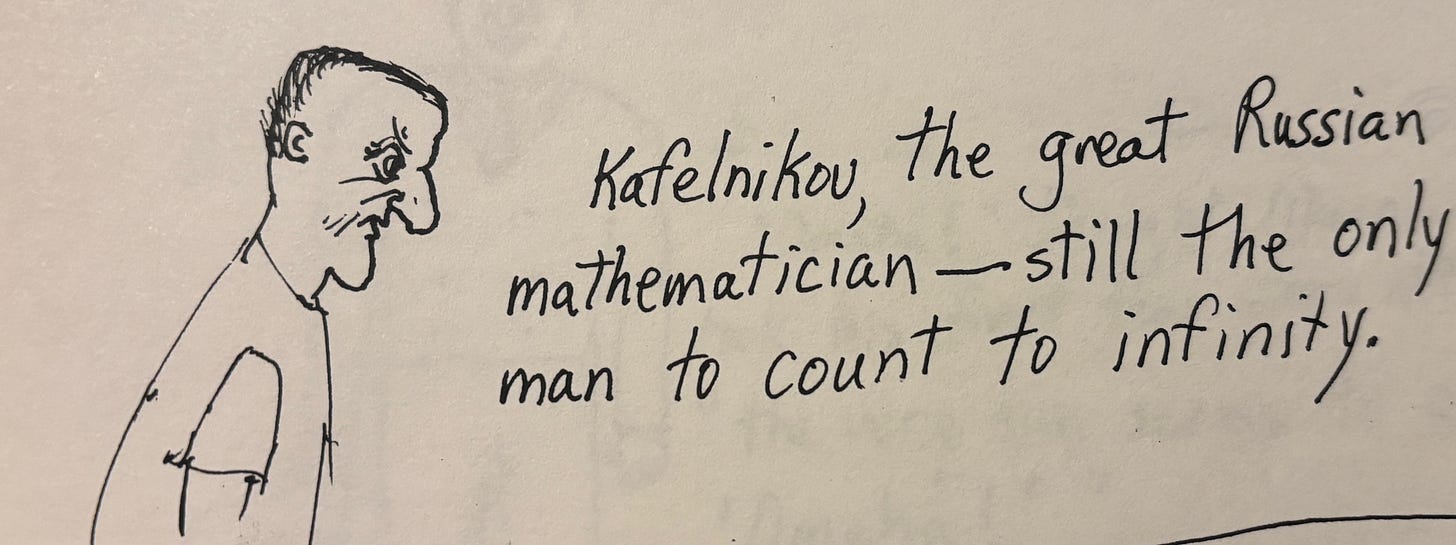 Kafelnikov, the great Russian
mathematician—still the only
man to count to infinity.